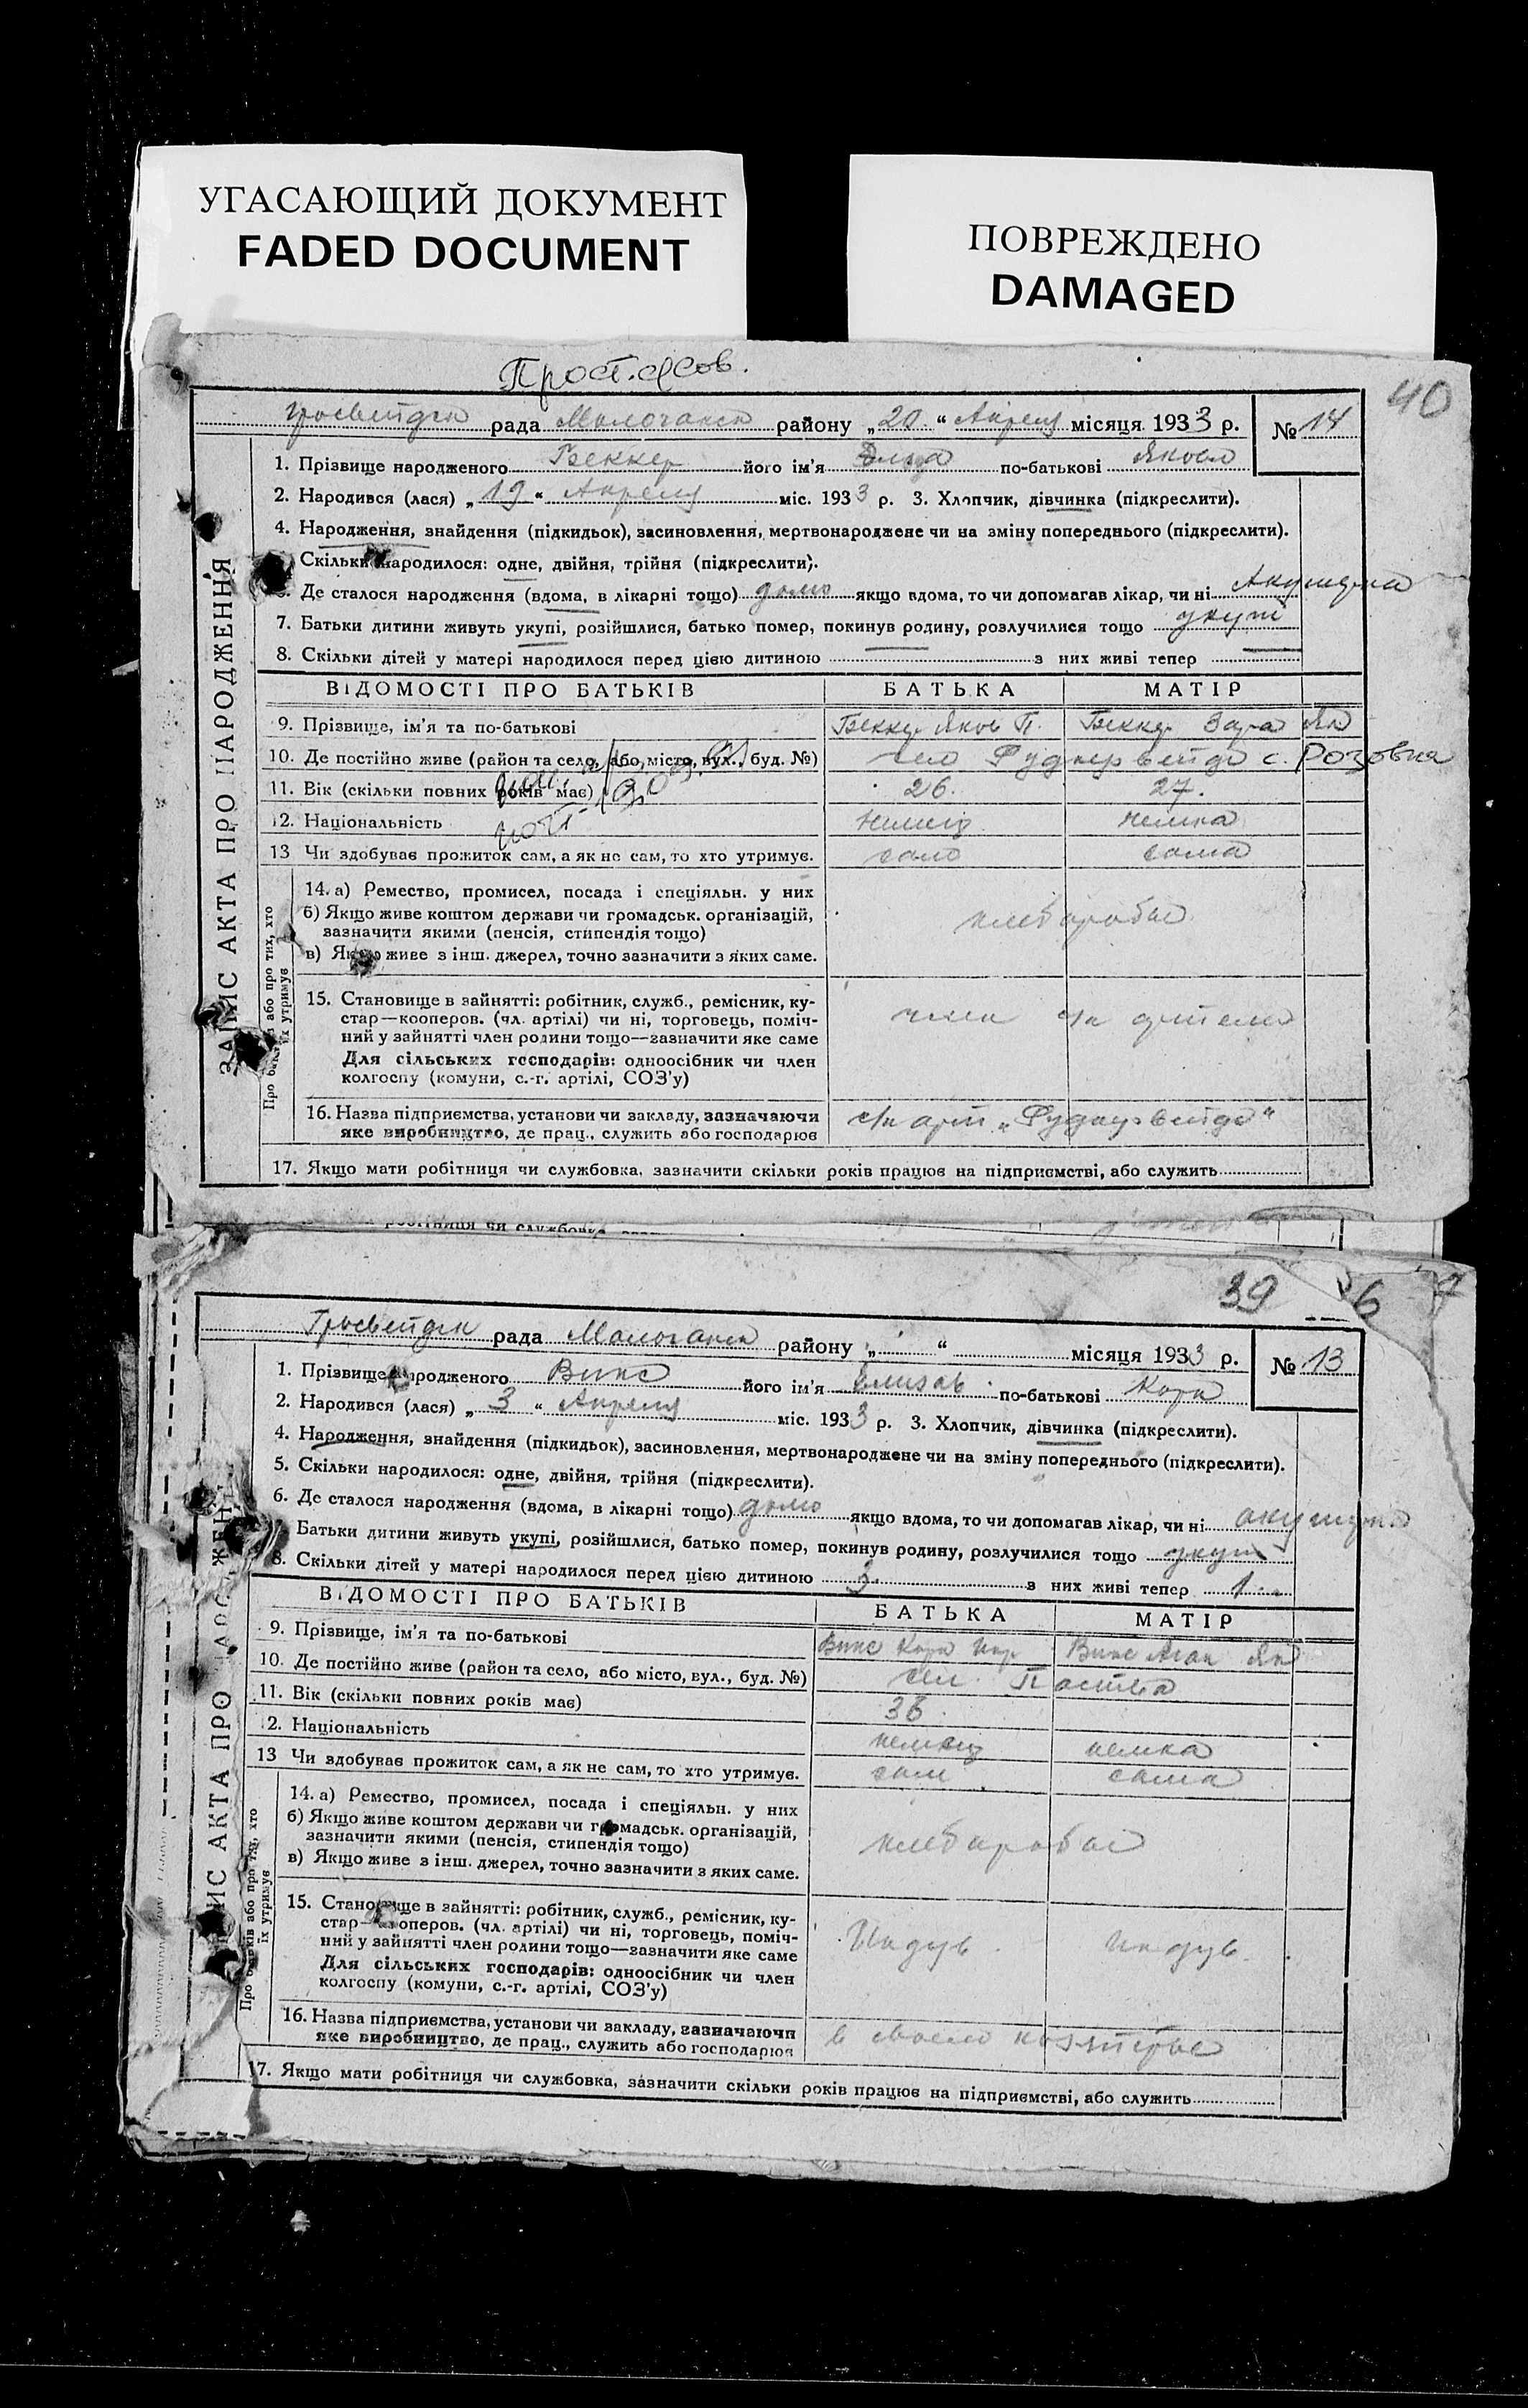 УГАСАЮЩИЙ ДОКУМЕНТ
FADED DOCUMENT
ПОВРЕЖДЕНО
DAMAGED
40
рада Молочанск району „20“ Апреля місяця 1933 р. № 14
1. Прізвище народженого Беккер його ім'я по-батькові Яковл
2. Народився (лася) „19“ Апреля міс. 1933 р. 3. Хлопчик, дівчинка (підкреслити).
4. Народження, знайдення (підкидьок), засиновлення, мертвонароджене чи на зміну попереднього (підкреслити).
Скільки народилося: одне, двійня, трійня (підкреслити).
Де сталося народження (вдома, в лікарні тощо) дома якщо вдома, то чи допомагав лікар, чи ні Акушерка
7. Батьки дитини живуть укупі, розійшлися, батько помер, покинув родину, розлучилися тощо укупі
8. Скільки дітей у матері народилося перед цією дитиною з них живі тепер
ЗАПИС АКТА ПРО НАРОДЖЕННЯ
ВІДОМОСТІ ПРО БАТЬКІВ БАТЬКА МАТІР
9. Прізвище, ім'я та по-батькові Беккер Яков П. Беккер Зара Як
10. Де постійно живе (район та село, або місто, вул., буд. №) село Руднервейде с. Розовка
11. Вік (скільки повних років має) 26. 27.
12. Національність немец немка
13 Чи здобуває прожиток сам, а як не сам, то хто утримує. сам сама
Про батьків або про тих, хто
їх утримує
14. а) Ремество, промисел, посада і спеціяльн. у них
б) Якщо живе коштом держави чи громадськ. організацій,
зазначити якими (пенсія, стипендія тощо)
в) Якщо живе з інш. джерел, точно зазначити з яких саме.
хлебороб
15. Становище в зайнятті: робітник, служб., ремісник, ку-
стар—кооперов. (чл. артілі) чи ні, торговець, поміч-
ний у зайнятті член родини тощо—зазначити яке саме
Для сільських господарів: одноосібник чи член
колгоспу (комуни, с.-г. артілі, СОЗ'у)
член с/х артели
16. Назва підприємства, установи чи закладу, зазначаючи
яке виробництво, де прац., служить або господарює
с/х арт. „Руднервейде“
17. Якщо мати робітниця чи службовка, зазначити скільки років працює на підприємстві, або служить
39 6 7
Гросвейдск рада Молочанск району „ “ місяця 1933 р. № 13
1. Прізвище народженого Винс його ім'я Елизав по-батькові Корн
2. Народився (лася) „3“ Апреля міс. 1933 р. 3. Хлопчик, дівчинка (підкреслити).
4. Народження, знайдення (підкидьок), засиновлення, мертвонароджене чи на зміну попереднього (підкреслити).
5. Скільки народилося: одне, двійня, трійня (підкреслити).
6. Де сталося народження (вдома, в лікарні тощо) дома якщо вдома, то чи допомагав лікар, чи ні акушерка
Батьки дитини живуть укупі, розійшлися, батько помер, покинув родину, розлучилися тощо укупі
8. Скільки дітей у матері народилося перед цією дитиною 3 з них живі тепер 1
ВІДОМОСТІ ПРО БАТЬКІВ БАТЬКА МАТІР
9. Прізвище, ім'я та по-батькові Винс Корн Винс Аган Як
10. Де постійно живе (район та село, або місто, вул., буд. №) сел. Паства
11. Вік (скільки повних років має) 36
12. Національність немец немка
13 Чи здобуває прожиток сам, а як не сам, то хто утримує. сам сама
14. а) Ремество, промисел, посада і спеціяльн. у них
б) Якщо живе коштом держави чи громадськ. організацій,
зазначити якими (пенсія, стипендія тощо)
в) Якщо живе з інш. джерел, точно зазначити з яких саме.
хлебороб
15. Становище в зайнятті: робітник, служб., ремісник, ку-
стар—кооперов. (чл. артілі) чи ні, торговець, поміч-
ний у зайнятті член родини тощо—зазначити яке саме
Для сільських господарів: одноосібник чи член
колгоспу (комуни, с.-г. артілі, СОЗ'у)
Индув. индув.
16. Назва підприємства, установи чи закладу, зазначаючи
яке виробництво, де прац., служить або господарює
в своем хозяйстве
17. Якщо мати робітниця чи службовка, зазначити скільки років працює на підприємстві, або служить